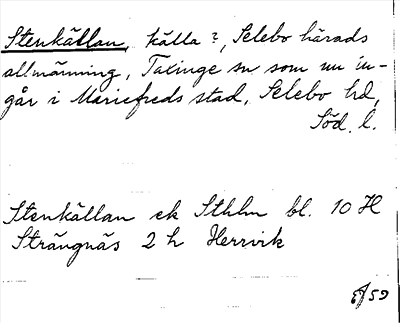 Stenkällan, källa?, Selebo härads
allmänning, Taxinge sn som nu in-
går i Mariefreds stad, Selebo hd,
Söd. l.
Stenkällan ek Sthlm bl. 10 H
Strängnäs 2 h Herrvik
59